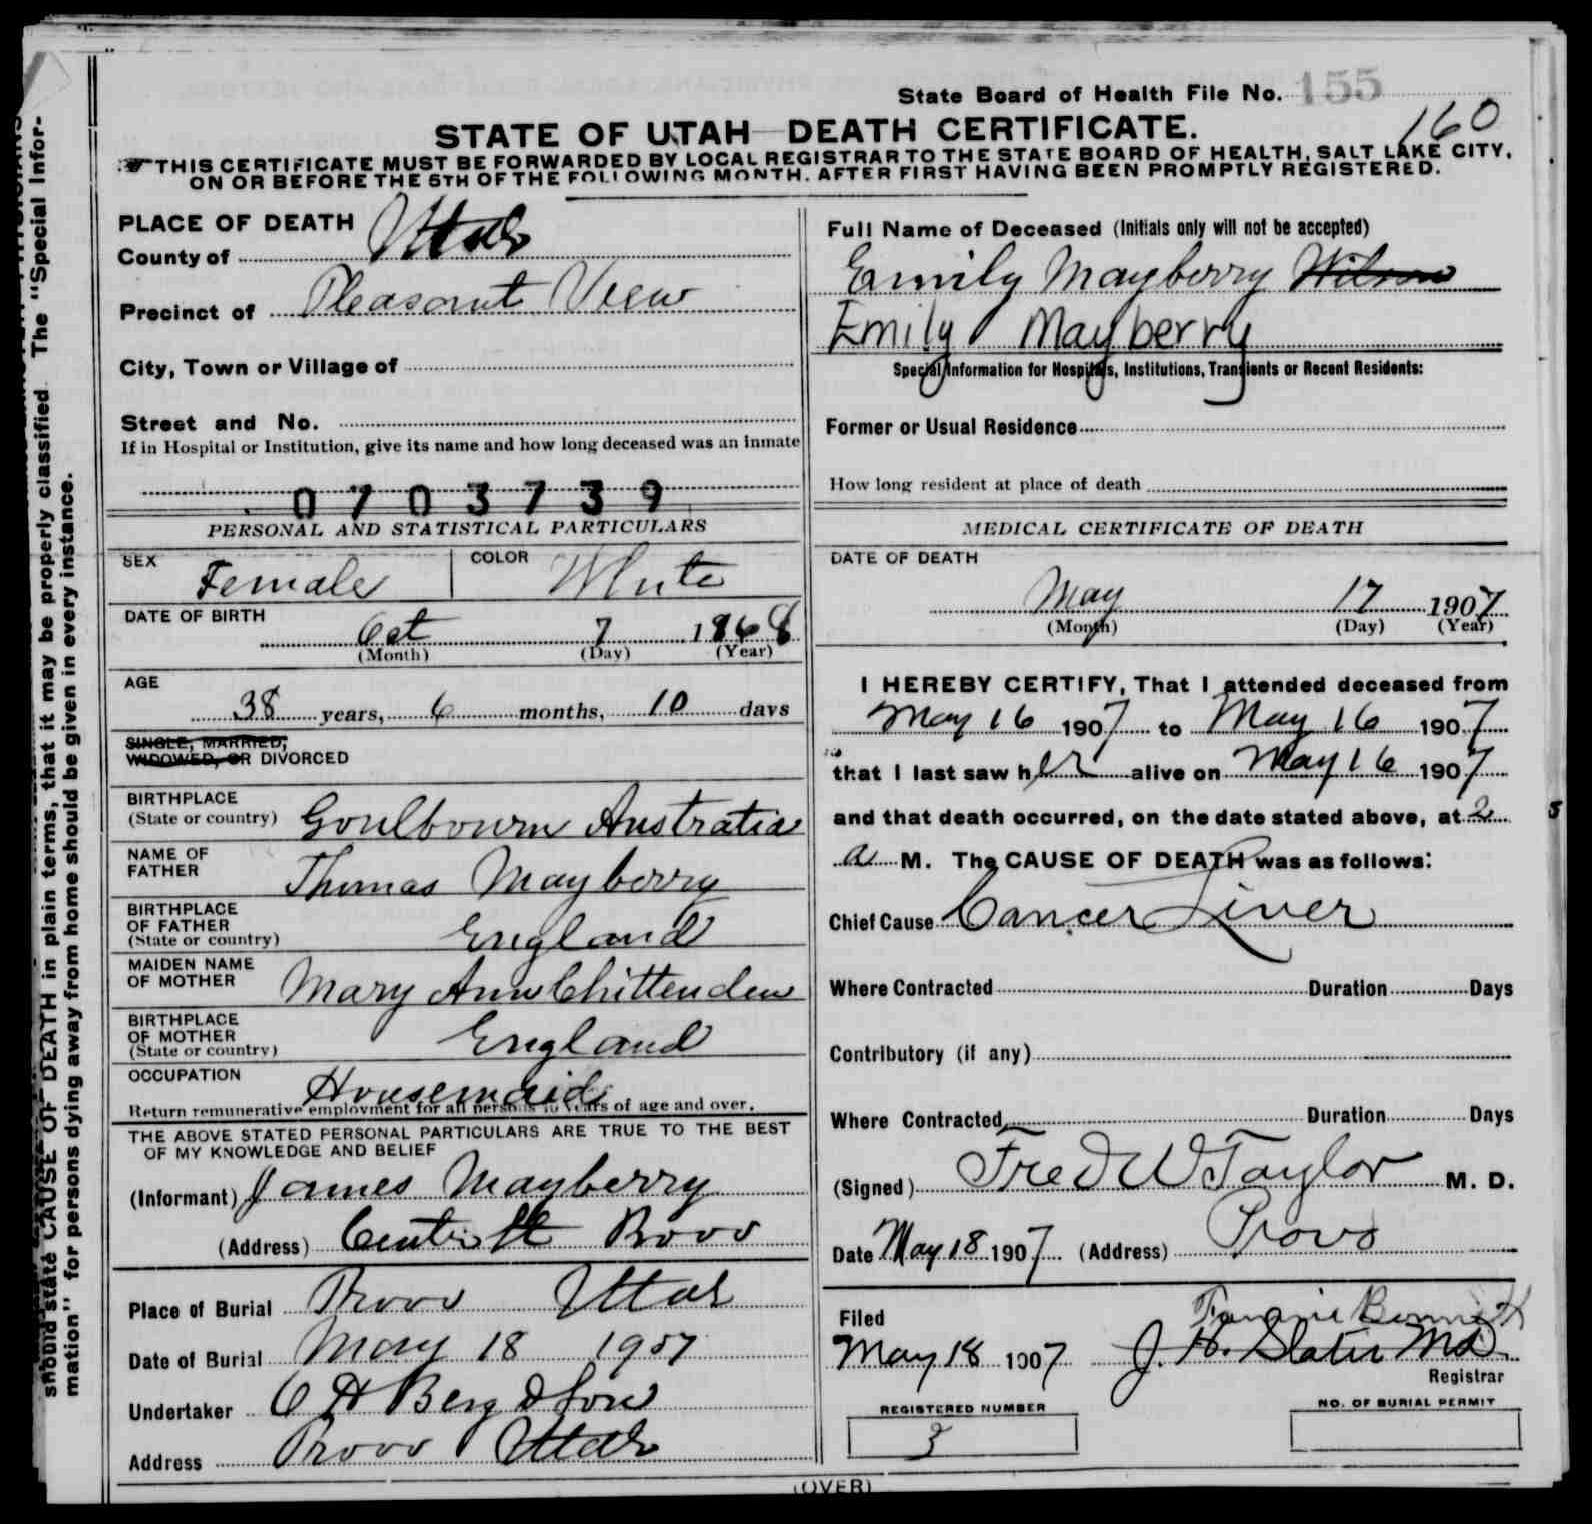 State Board of Health File No. 155
160
STATE OF UTAH DEATH CERTIFICATE.
THIS CERTIFICATE MUST BE FORWARDED BY LOCAL REGISTRAR TO THE STATE BOARD OF HEALTH, SALT LAKE CITY,
ON OR BEFORE THE 5TH OF THE FOLLOWING MONTH, AFTER FIRST HAVING BEEN PROMPTLY REGISTERED.
should state CAUSE OF DEATH in plain terms, that it may be properly classified. The "Special Infor-
mation" for persons dying away from home should be given in every instance.
PLACE OF DEATH
County of Utah
Precinct of Pleasant View
City, Town or Village of
Street and No.
If in Hospital or Institution, give its name and how long deceased was an inmate
0703739
PERSONAL AND STATISTICAL PARTICULARS
SEX Female COLOR White
DATE OF BIRTH
Oct 7 1868
(Month) (Day) (Year)
AGE
38 years, 6 months, 10 days
SINGLE, MARRIED,
WIDOWED, OR DIVORCED
BIRTHPLACE
(State or country) Goulbourn Australia
NAME OF
FATHER Thomas Mayberry
BIRTHPLACE
OF FATHER
(State or country) England
MAIDEN NAME
OF MOTHER Mary Ann Chittenden
BIRTHPLACE
OF MOTHER
(State or country) England
OCCUPATION Housemaid
Return remunerative employment for all persons 10 years of age and over.
THE ABOVE STATED PERSONAL PARTICULARS ARE TRUE TO THE BEST
OF MY KNOWLEDGE AND BELIEF
(Informant) James Mayberry
(Address) Center St Provo
Place of Burial Provo Utah
Date of Burial May 18 1907
Undertaker O H Berg & Son
Address Provo Utah
Full Name of Deceased (Initials only will not be accepted)
Emily Mayberry Wilson
Emily Mayberry
Special Information for Hospitals, Institutions, Transients or Recent Residents:
Former or Usual Residence
How long resident at place of death
MEDICAL CERTIFICATE OF DEATH
DATE OF DEATH
May 17 1907
(Month) (Day) (Year)
I HEREBY CERTIFY, That I attended deceased from
May 16 1907 to May 16 1907
that I last saw her alive on May 16 1907
and that death occurred, on the date stated above, at 2
a M. The CAUSE OF DEATH was as follows:
Chief Cause Cancer Liver
Where Contracted Duration Days
Contributory (if any)
Where Contracted Duration Days
(Signed) Fred W Taylor M. D.
Date May 18 1907 (Address) Provo
Filed
May 18 1907 J. H. Slater MD
Registrar
REGISTERED NUMBER
3
NO. OF BURIAL PERMIT
(OVER)